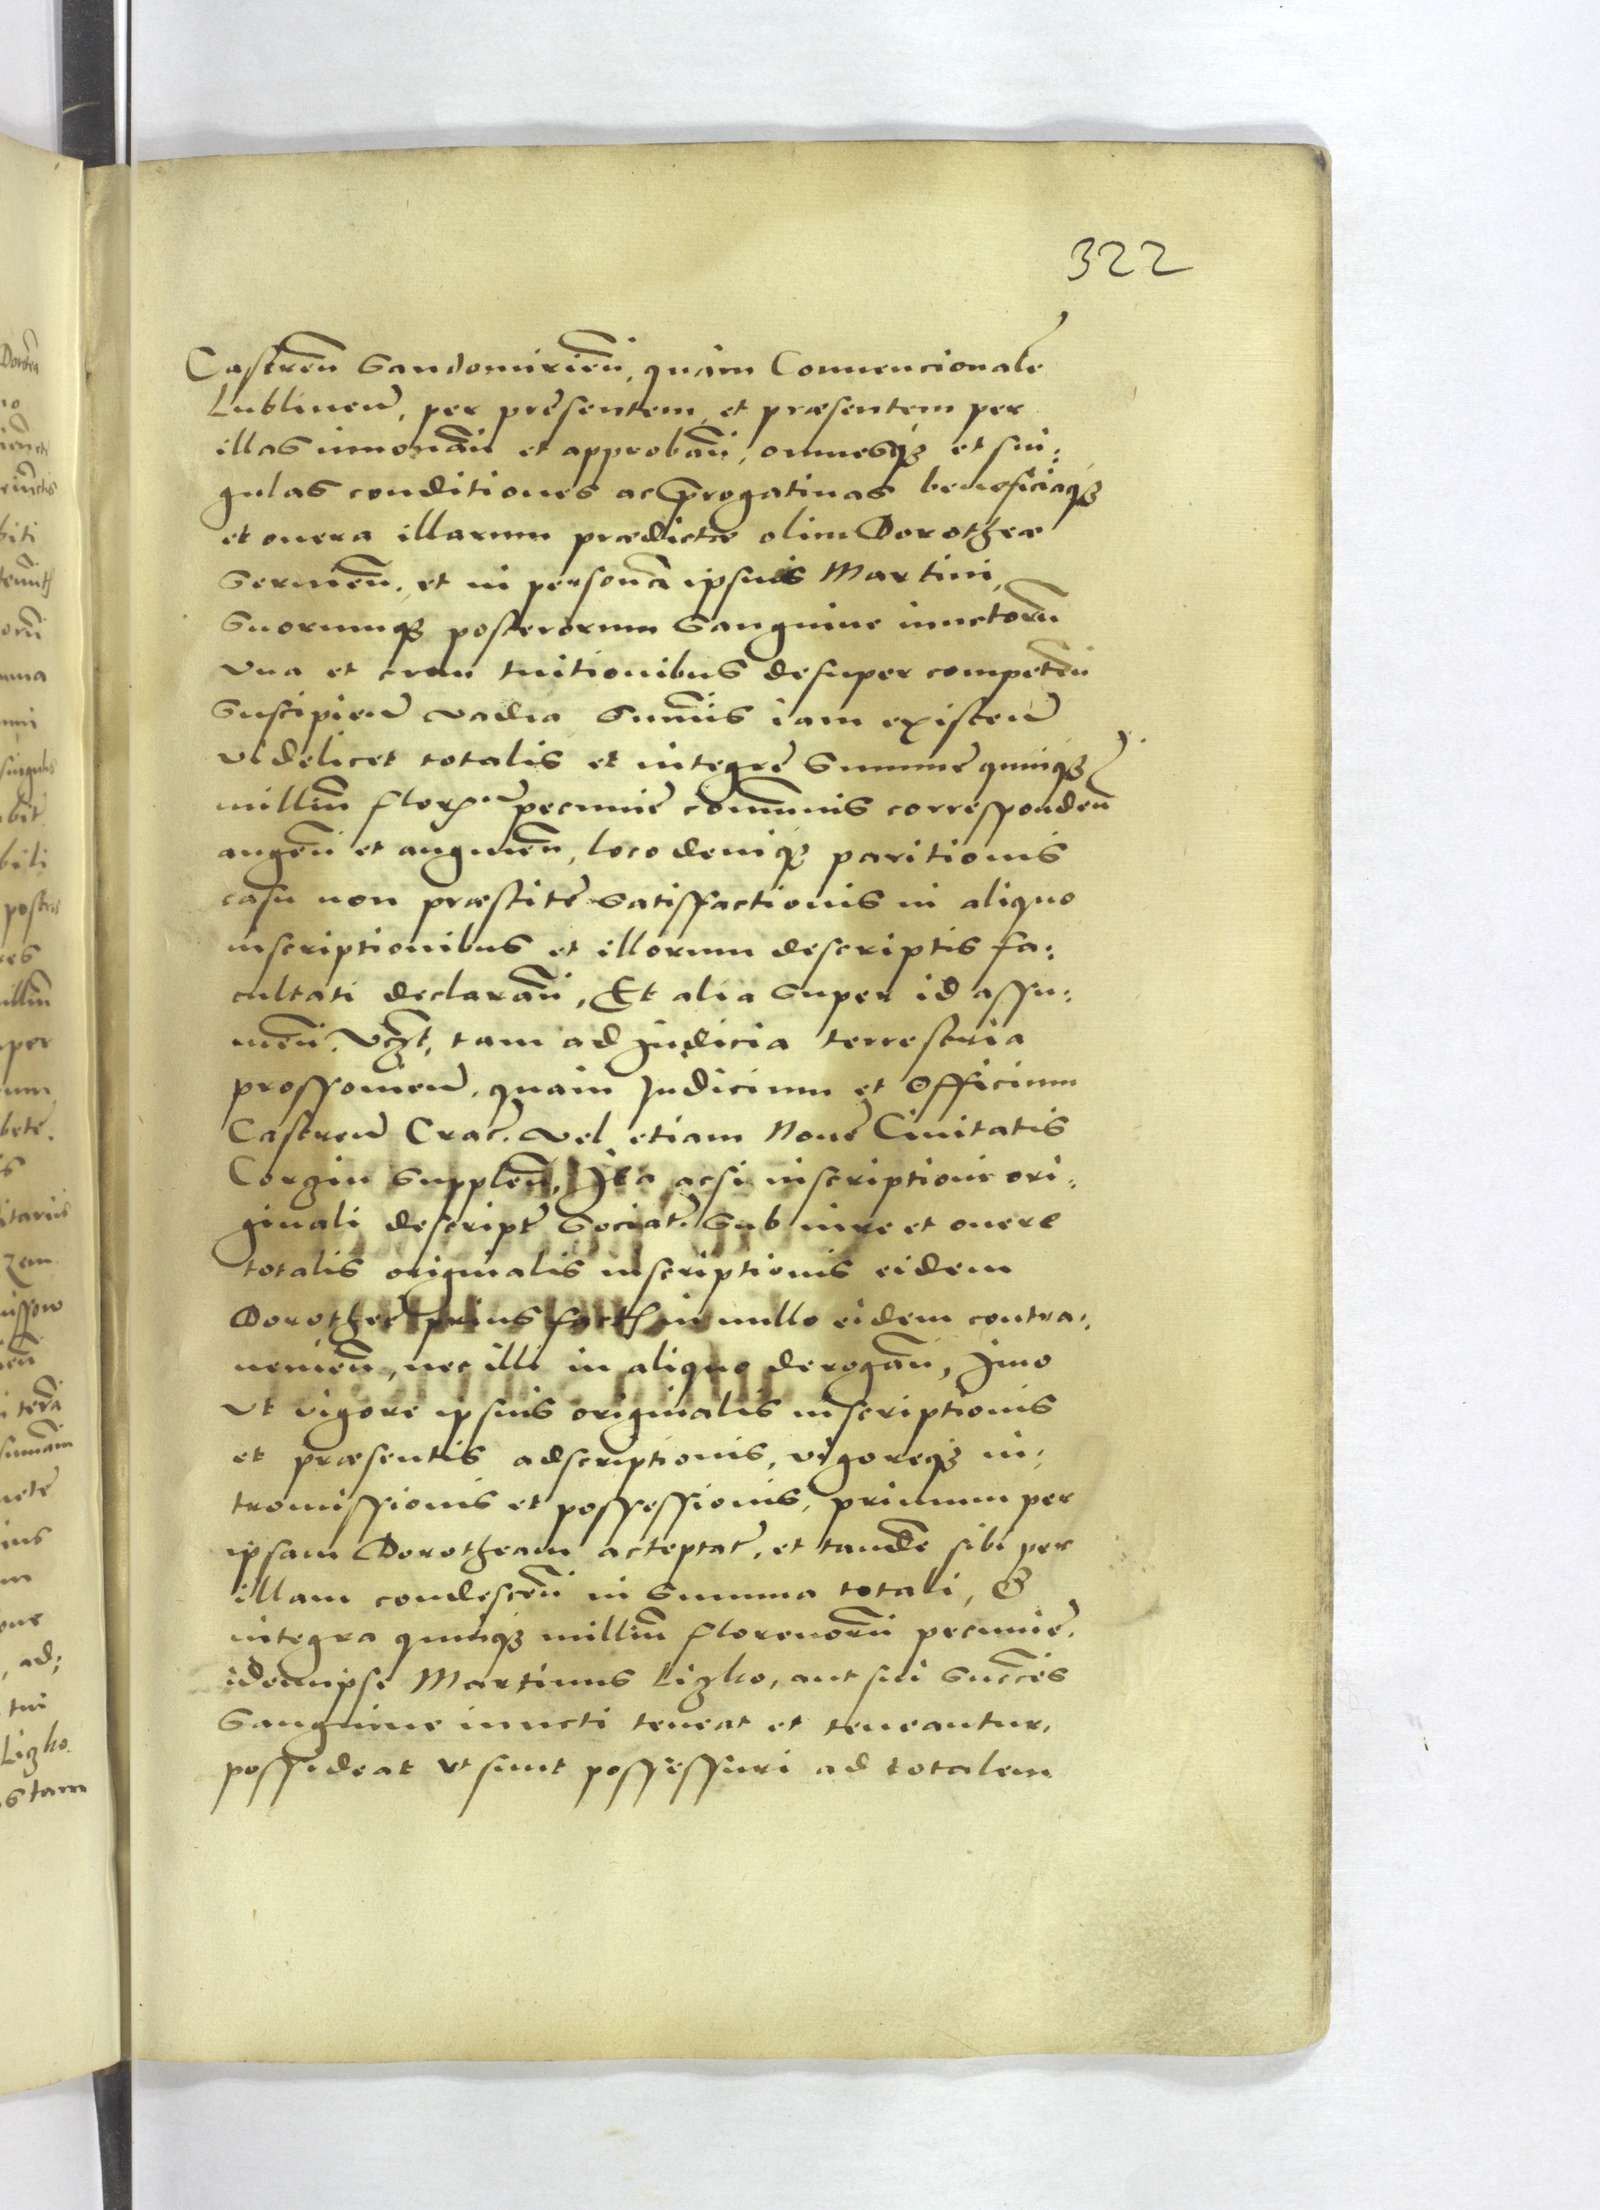 322
Castren̄ Sandomirien̄, quam Conuencionale
Lublinen̄, per presentem et præsentem per
illas innouan̄ et approban̄, omnesqꝫ et sin:
gulas conditiones ac prerogatiuas beneficiaqꝫ
et onera illarum prædictæ olim Dorotheæ
Seruien̄, et in persona ipsius Martini,
Suorumqꝫ posterorum Sanguine iunctorū
vna et cum tuitionibus desuper competen̄
Suscipien̄ vadia Summis iam existen̄
videlicet totalis et integre Summe quinqꝫ
milliū flor pecunie com̄unis corresponden̄
augen̄ et augmen̄, loco deniqꝫ paritionis
casu non præstite Satisfactionis in aliquo
inscriptionibus et illorum descriptis fa:
cultati declaran̄, Et alia Super id assu:
men̄. tam ad Judicia terrestria
prossouien̄. quam Judicium et Officium
Castren̄ Crac. vel etiam Noue Ciuitatis
Corzin Supplen̄, Ita acsi inscriptione ori:
ginali descript Sociat. Sub iure et onere
totalis originalis inscriptionis eidem
Dorothee prius fact in nullo eidem contra:
uenien̄, nec illi in aliquo derogan̄, Imo
vt vigore ipsius originalis inscriptionis
et præsentis adscriptionis, vigoreqꝫ in:
tromissionis et possessionis, primum per
ipsam Dorotheam acceptat, et tande sibi per
illam condescen̄ in Summa totali, &
integra quinqꝫ milliū florenorū pecunie.
idemipse Martinus Lizko, aut sui Succes
Sanguine iuncti teneat et teneantur,
possideat vt sunt possessuri ad totalem